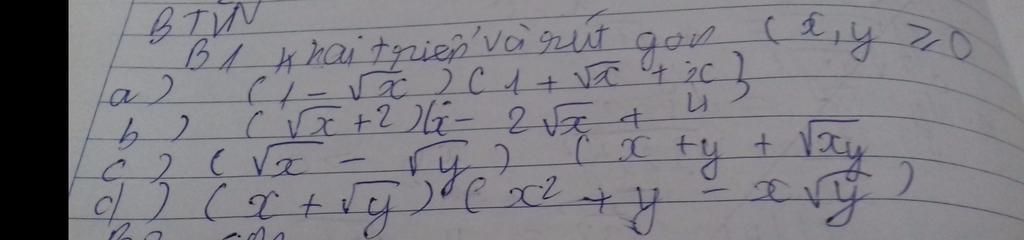 BTVN
B1 Khai triển và rút gọn (x, y ≥ 0
a) (1 - √x) (1 + √x + x)
b) (√x + 2)(x - 2√x + 4
c) (√x - √y) (x + y + √xy
d) (x + √y) (x² + y - x√y)